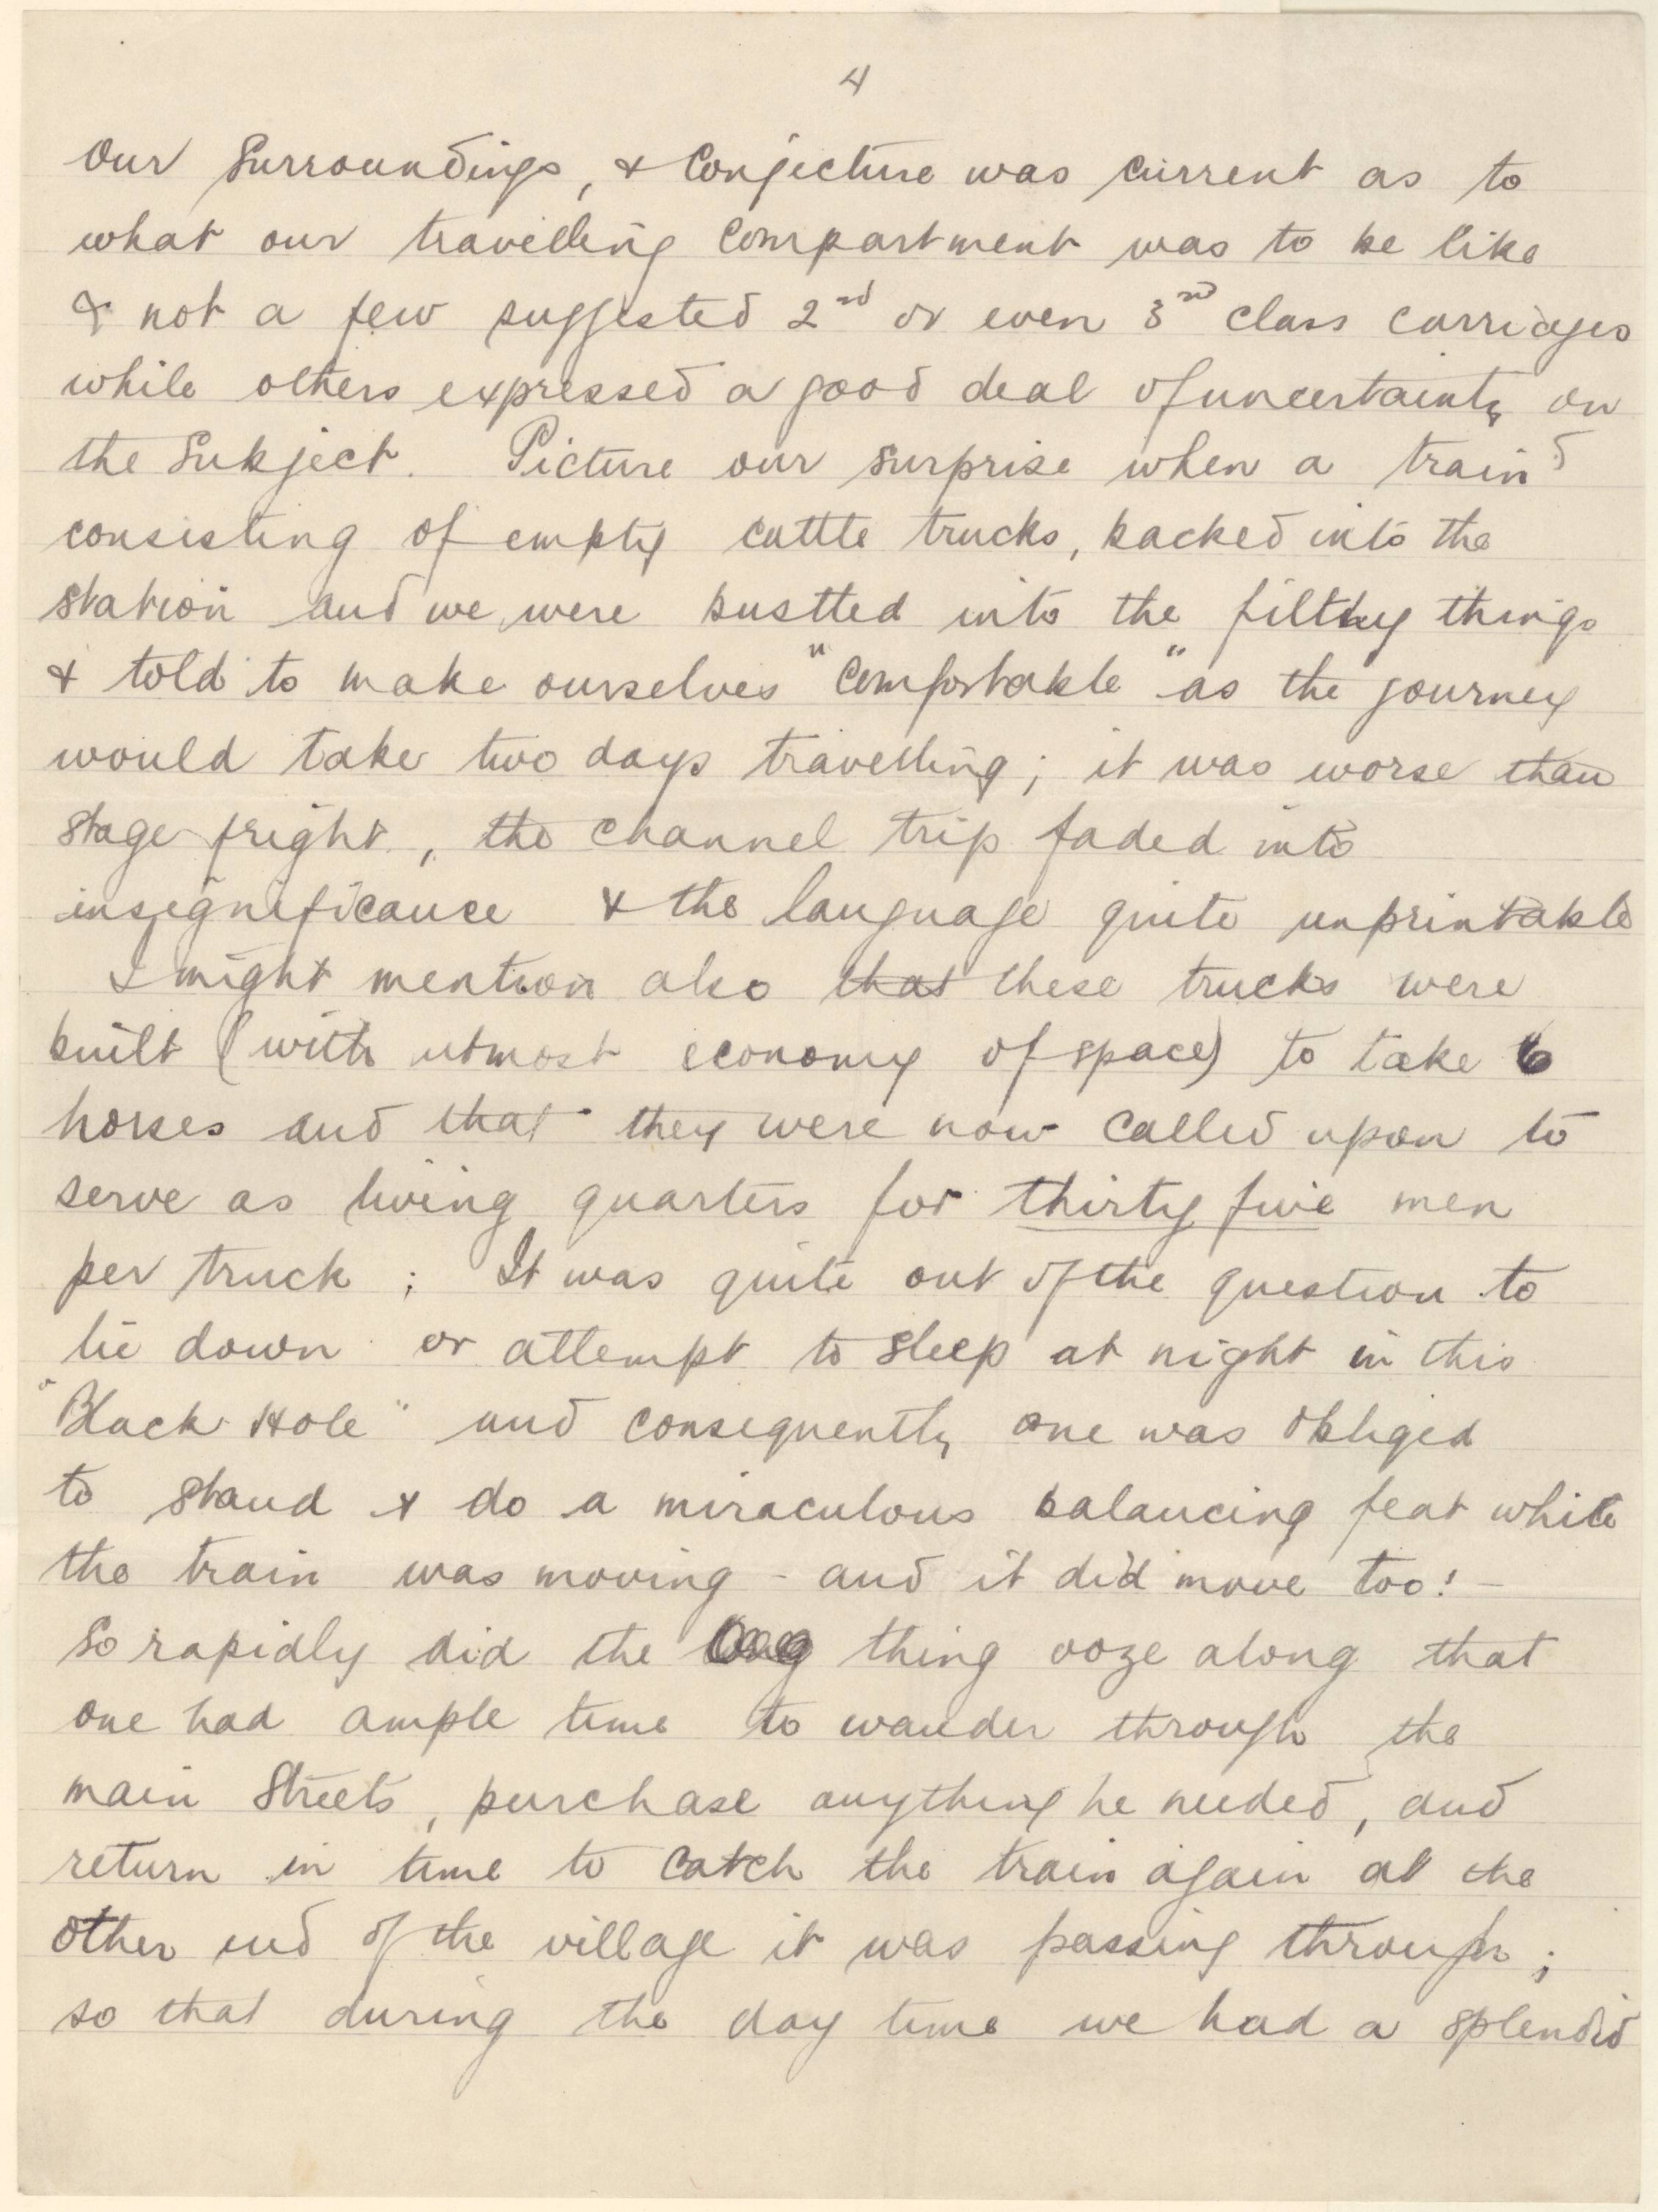 4
Our Surroundings, & Conjecture was current as to
what our travelling Compartment was to be like
& not a few suggested 2nd or even 3rd class carriages
while others expressed a good deal of uncertainty on
the Subject. Picture our surprise when a train
consisting of empty cattle trucks, backed into the
station and we were bustled into the filthy things
& told to make ourselves "Comfortable" as the journey
would take two days travelling; it was worse than
stage fright, the channel trip faded into
insignificance & the language quite unprintable
I might mention also that these trucks were
built (with utmost economy of space) to take 6
horses and that they were now called upon to
serve as living quarters for thirty five men
per truck; It was quite out of the question to
lie down or attempt to sleep at night in this
"Black Hole" and consequently one was obliged
to stand & do a miraculous balancing feat while
the train was moving - and it did move too! -
So rapidly did the thing ooze along that
one had ample time to wander through the
main Streets, purchase anything he needed, and
return in time to catch the train again at the
other end of the village it was passing through;
so that during the day time we had a splendid